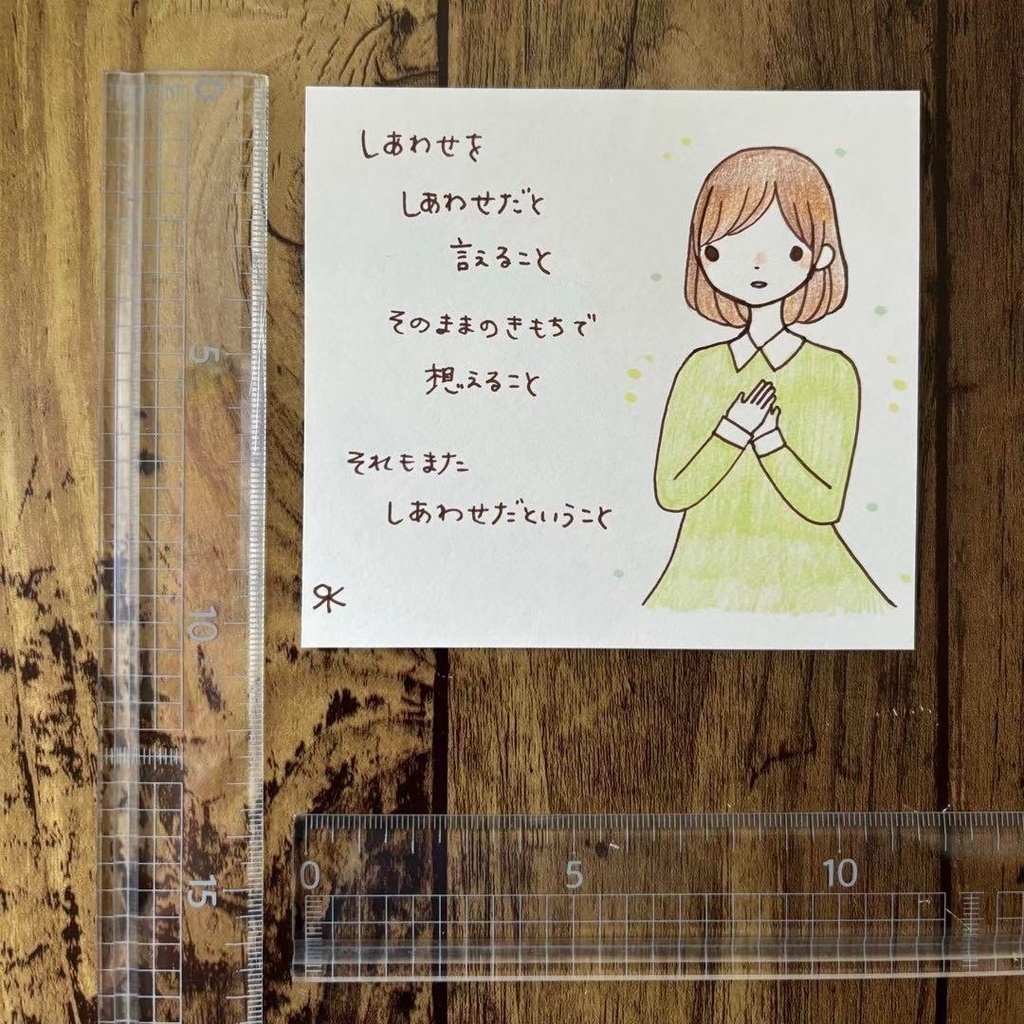 しあわせを
しあわせだと
言えること
そのままのきもちで
想えること
それもまた
しあわせだということ
0
5
10
15
0
5
10